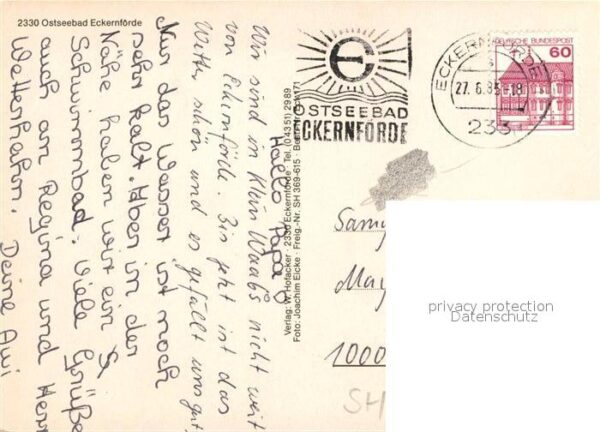 2330 Ostseebad Eckernförde
Hallo Papa!
Wir sind in Klein Waabs nicht weit
von Eckernförde. Bis jetzt ist das
Wetter schön und es gefällt uns gut,
Nur das Wasser ist noch
sehr kalt. Aber in der
Nähe haben wir ein
Schwimmbad. Viele Grüße
auch an Regina und Herr
Wetterhahn. Deine
Verlag: W. Hofacker · 2330 Eckernförde · Tel. (0 43 51) 29 89
Foto: Joachim Eicke · Freig.-Nr. SH 369-615
OSTSEEBAD
ECKERNFÖRDE
ECKERNFÖRDE
27. 6. 83 -18
233
DEUTSCHE BUNDESPOST
60
1000
SH
privacy protection
Datenschutz